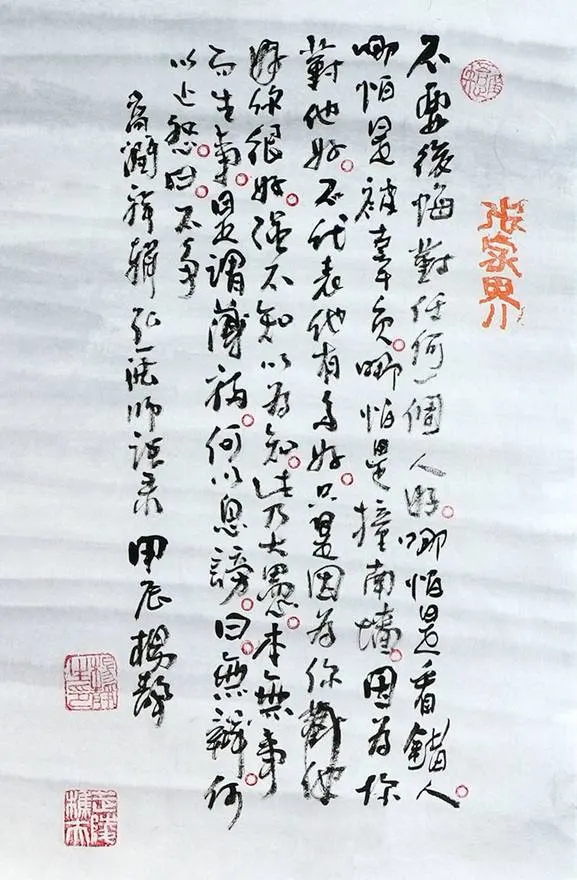 張家界
不要後悔對任何一個人好。哪怕是看錯人。
哪怕是被辜負。哪怕是撞南墻。因為你
對他好。不代表他有多好。只是因為你
你很好。强不知以為知。此乃大愚。本無事
而生事。是謂薄福。何以息謗。曰無辯。何
以止怨。曰。不爭
輯弘一法師語录 甲辰楊